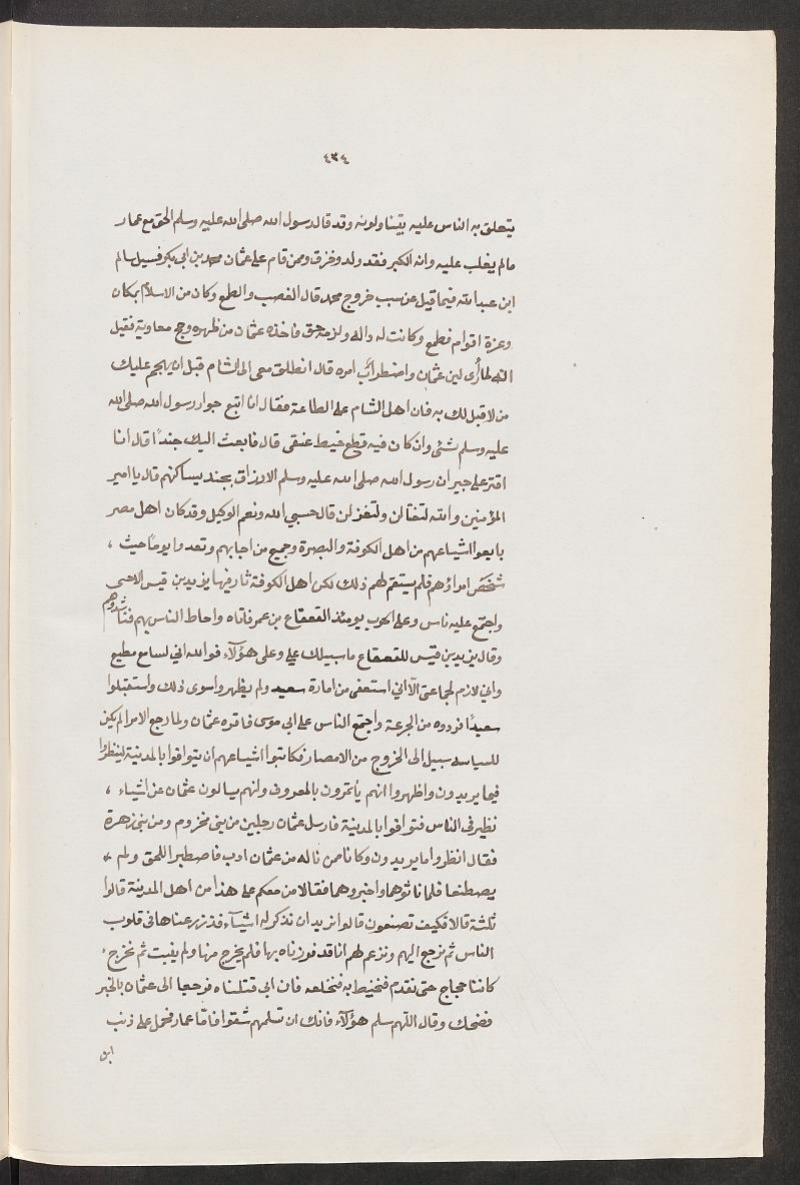 ٤٣٤
يتعلق به الناس عليه يتناولونه وقد قال رسول الله صلى الله عليه وسلم الحق مع عمار
مالم يغلب عليه وانه الكبر فقد وله وخرق وممن قام على عثمان محمد بن ابي بكر فسيل سالم
ابن عبد الله فيما قيل عن سبب خروج محمد قال الغضب والطمع وكان من الاسلام بمكان
وغرة اقوام فطمع وكانت له دالة ولزمه حق فاخذه عثمان من ظهره وحج معاوية فقيل
انه لما رأى لين عثمان واضطراب امره قال انطلق معى الى الشام قبل ان يهجم عليك
من لا قبل لك به فان اهل الشام على الطاعة فقال انا اتبع جوار رسول الله صلى الله
عليه وسلم شئ وان كان فيه قطع خيط عنقى قال فابعث اليك جنداً قال أنا
اقتر على جيران رسول الله صلى الله عليه وسلم الارزاق بجند يساكنهم قال يا امير
المؤمنين والله لتغتالن ولتغزلن قال حسبي الله ونعم الوكيل وقد كان اهل مصر
بايعوا اشياعهم من اهل الكوفة والبصرة وجميع من اجابهم وتعدوا يوماً حيث ،
شخص امراؤهم فلم يستقم لهم ذلك لكن اهل الكوفة ثار فيها يزيد بن قيس الاحبى
واجتمع عليه ناس وعلى الحرب يومئذ القعقاع بن عمر فاتاه واحاط الناس بهم فناشدوهم
وقال يزيد بن قيس للقعقاع ما سبيلك علي وعلى هؤلآء فوالله اني لسامع مطيع
واني لازم لجماعتى الآ اني استعفى من امارة سعيد ولم يظهروا سوى ذلك واستقبلوا
سعيدًا فردوه من الجرعة واجتمع الناس على ابى موسى فاقره عثمان ولما رجع الامر لم يكن
للسباسه سبيل الى الخروج من الامصار فكاتبوا اشياعهم أن يتوافوا بالمدينة لينظروا
فيما يريدون واظهروا انهم يأتمرون بالمعروف وانهم يسالون عثمان عن اشياء ،
نظير فى الناس فتوافوا بالمدينة فارسل عثمان رجلين من بنى مخزوم ومن بنى زهرة
فقال انظروا ما يريدون وكانا ممن ناله من عثمان ادب فاصطبرا للحق ولم ،
يصطنعا فلما ناثوهما واخبروهما فقالا من معكم على هذا من اهل المدينة قالوا
ثلثة قالا فكيف تصنعون قالوا نريد ان نذكر له اشيآء قد زرعناها فى قلوب
الناس ثم نرجع اليهم ونزعم لهم انا قد قررناه بها فلم يخرج منها ولم يثبت ثم نخرج ،
كاننا حجاج حتى نقدم فنحيط به فنخلعه فان ابى قتلناه فرجعا الى عثمان بالخبر
فضحك وقال اللهم سلم هؤلآء فانك ان تسلمهم شقوا فامّا عمار فحمل على ذنب
ابن